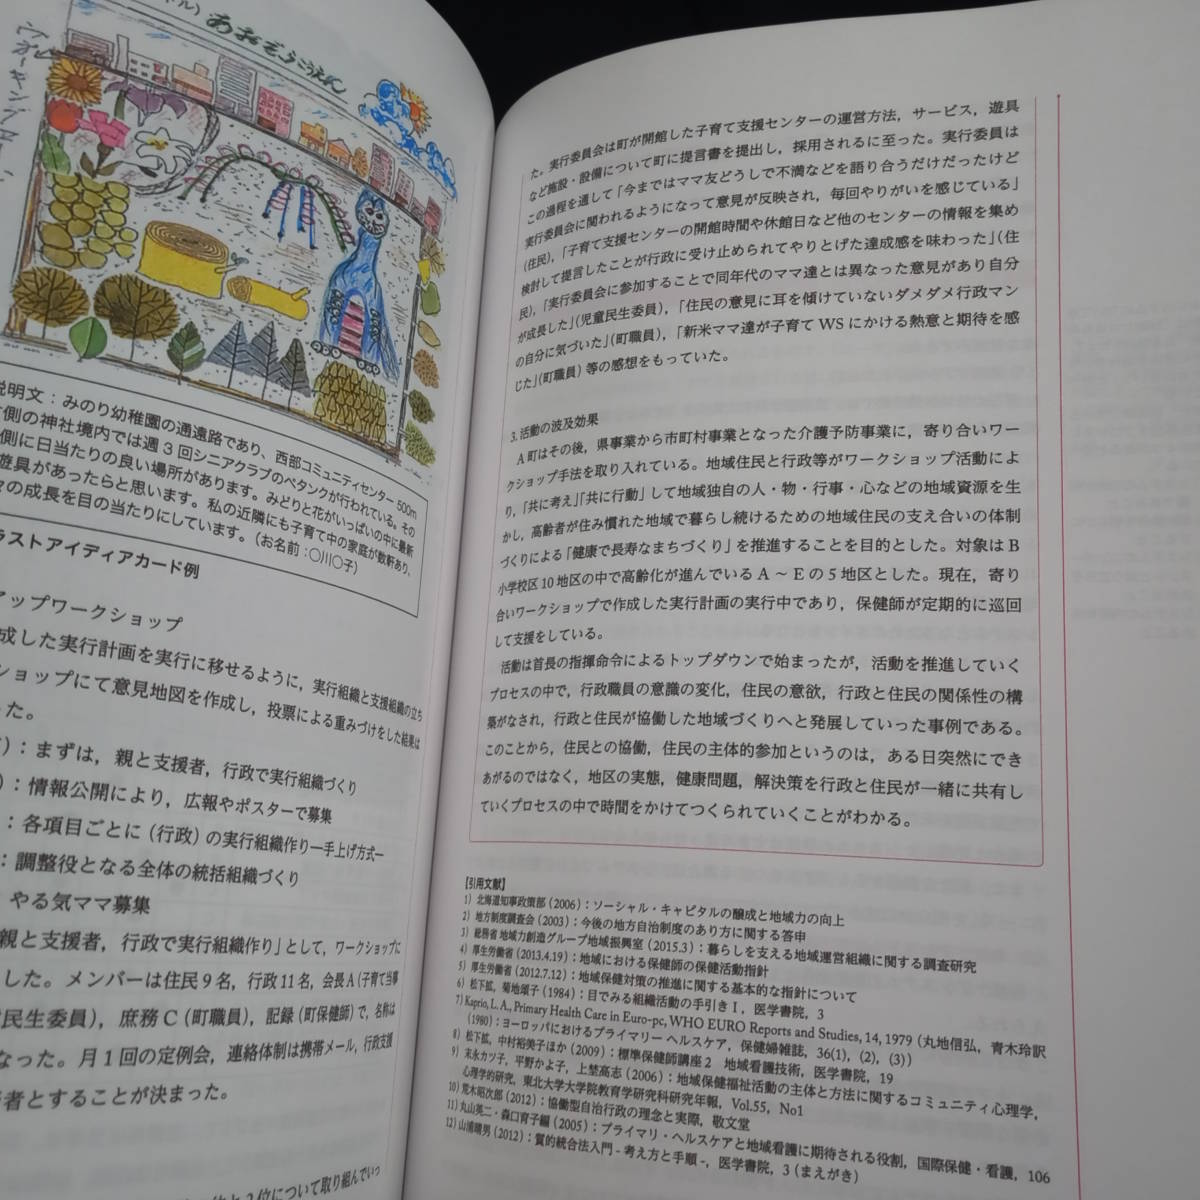 トル）
あおぞらこうえん
説明文：みのり幼稚園の通遠路であり、西部コミュニティセンター 500m
側の神社境内では週３回シニアクラブのペタンクが行われている。その
側に日当たりの良い場所があります。みどりと花がいっぱいの中に最新
遊具があったらと思います。私の近隣にも子育て中の家庭が数軒あり、
々の成長を目の当たりにしています。（お名前：〇川〇子）
ラストアイディアカード例
アップワークショップ
成した実行計画を実行に移せるように，実行組織と支援組織の立ち
ショップにて意見地図を作成し，投票による重みづけをした結果は
った。
）：まずは，親と支援者，行政で実行組織づくり
）：情報公開により，広報やポスターで募集
：各項目ごとに（行政）の実行組織作り―手上げ方式―
：調整役となる全体の統括組織づくり
やる気ママ募集
親と支援者，行政で実行組織作り」として，ワークショップに
した。メンバーは住民９名，行政11名，会長Ａ（子育て当事
民生委員），庶務Ｃ（町職員），記録（町保健師）で，名称は
なった。月１回の定例会，連絡体制は携帯メール，行政支援
者とすることが決まった。
２位について取り組んでいっ
た。実行委員会は町が開館した子育て支援センターの運営方法，サービス，遊具
など施設・設備について町に提言書を提出し，採用されるに至った。実行委員は
この過程を通して「今まではママ友どうしで不満などを語り合うだけだったけど
実行委員会に関われるようになって意見が反映され，毎回やりがいを感じている」
（住民），「子育て支援センターの開館時間や休館日など他のセンターの情報を集め
検討して提言したことが行政に受け止められてやりとげた達成感を味わった」（住
民），「実行委員会に参加することで同年代のママ達とは異なった意見があり自分
が成長した」（児童民生委員），「住民の意見に耳を傾けていないダメダメ行政マン
の自分に気づいた」（町職員），「新米ママ達が子育てWSにかける熱意と期待を感
じた」（町職員）等の感想をもっていた。
3. 活動の波及効果
Ａ町はその後，県事業から市町村事業となった介護予防事業に，寄り合いワー
クショップ手法を取り入れている。地域住民と行政等がワークショップ活動によ
り，「共に考え」「共に行動」して地域独自の人・物・行事・心などの地域資源を生
かし，高齢者が住み慣れた地域で暮らし続けるための地域住民の支え合いの体制
づくりによる「健康で長寿なまちづくり」を推進することを目的とした。対象はＢ
小学校区10地区の中で高齢化が進んでいるＡ～Ｅの５地区とした。現在，寄り
合いワークショップで作成した実行計画の実行中であり，保健師が定期的に巡回
して支援をしている。
活動は首長の指揮命令によるトップダウンで始まったが，活動を推進していく
プロセスの中で，行政職員の意識の変化，住民の意欲，行政と住民の関係性の構
築がなされ，行政と住民が協働した地域づくりへと発展していった事例である。
このことから，住民との協働，住民の主体的参加というのは，ある日突然にでき
あがるのではなく，地区の実態，健康問題，解決策を行政と住民が一緒に共有し
ていくプロセスの中で時間をかけてつくられていくことがわかる。
【引用文献】
1）北海道知事政策部（2006）：ソーシャル・キャピタルの醸成と地域力の向上
2）地方制度調査会（2003）：今後の地方自治制度のあり方に関する答申
3）総務省 地域力創造グループ地域振興室（2015.3）：暮らしを支える地域運営組織に関する調査研究
4）厚生労働省（2013.4.19）：地域における保健師の保健活動指針
5）厚生労働省（2012.7.12）：地域保健対策の推進に関する基本的な指針について
6）松下拡，菊地頌子（1984）：目でみる組織活動の手引きⅠ，医学書院，3
7）Kaprio, L. A., Primary Health Care in Euro-pc, WHO EURO Reports and Studies, 14, 1979（丸地信弘，青木玲訳
（1980）：ヨーロッパにおけるプライマリー ヘルスケア，保健婦雑誌，36(1)，(2)，(3)）
8）松下拡，中村裕美子ほか（2009）：標準保健師講座２ 地域看護技術，医学書院，19
9）末永カツ子，平野かよ子，上埜高志（2006）：地域保健福祉活動の主体と方法に関するコミュニティ心理学，
心理学的研究，東北大学大学院教育学研究科研究年報，Vol.55，No1
10）荒木昭次郎（2012）：協働型自治行政の理念と実際，敬文堂
11）丸山英二・森口育子編（2005）：プライマリ・ヘルスケアと地域看護に期待される役割，国際保健・看護，106
12）山浦晴男（2012）：質的統合法入門 - 考え方と手順 -，医学書院，3（まえがき）